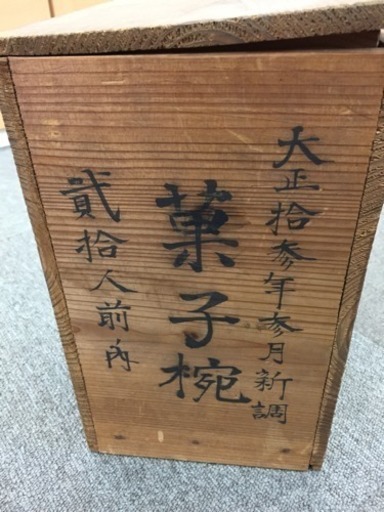 大正拾参年参月新調
菓子椀
貮拾人前内